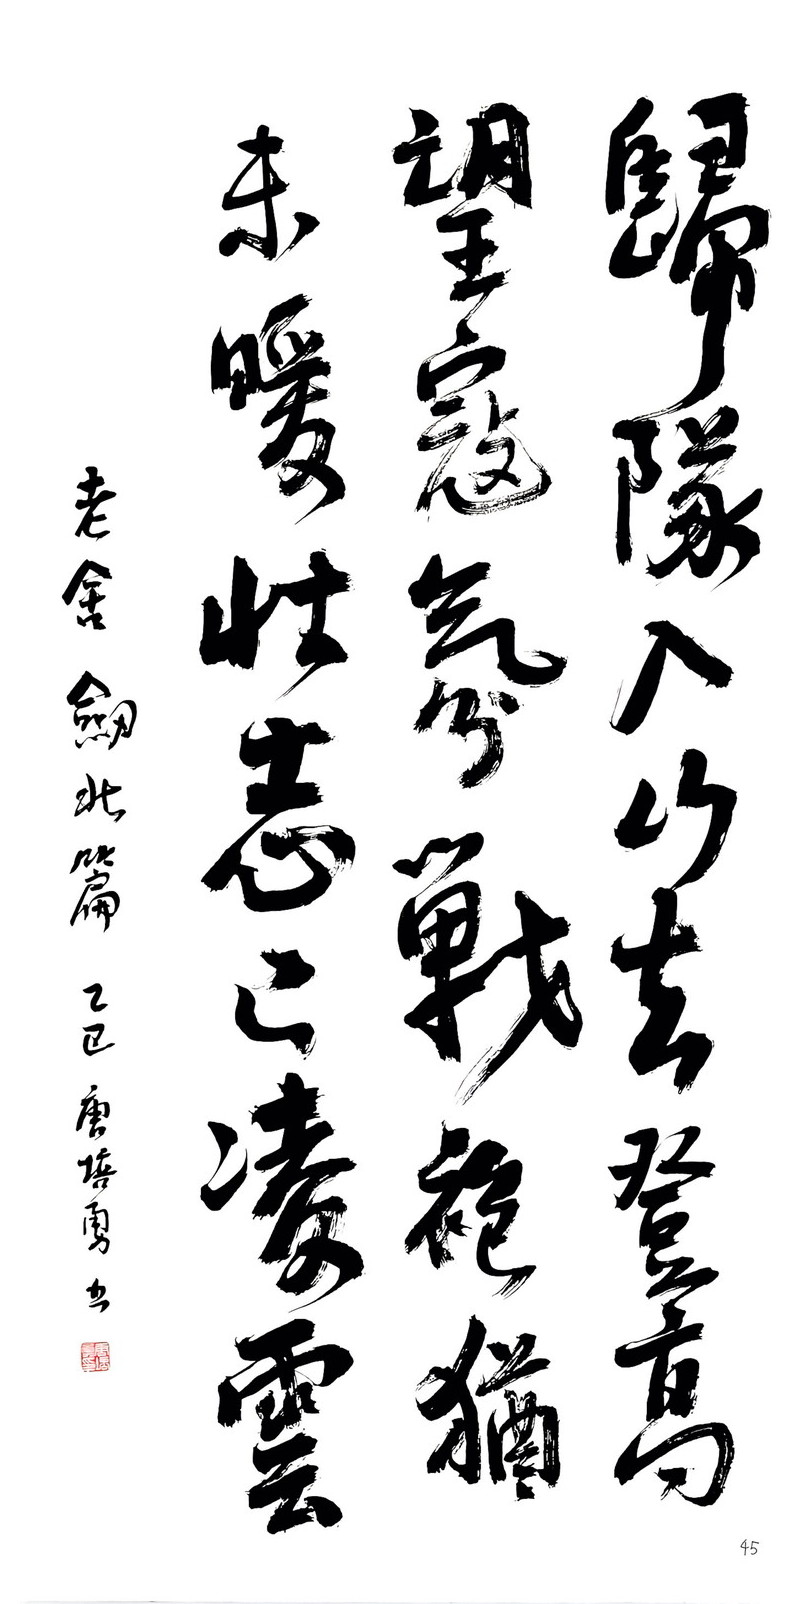 歸隊入山去登高
望寇氛戰袍猶
未暖壯志已凌雲
老舍劒北篇 乙巳 唐培勇书
45